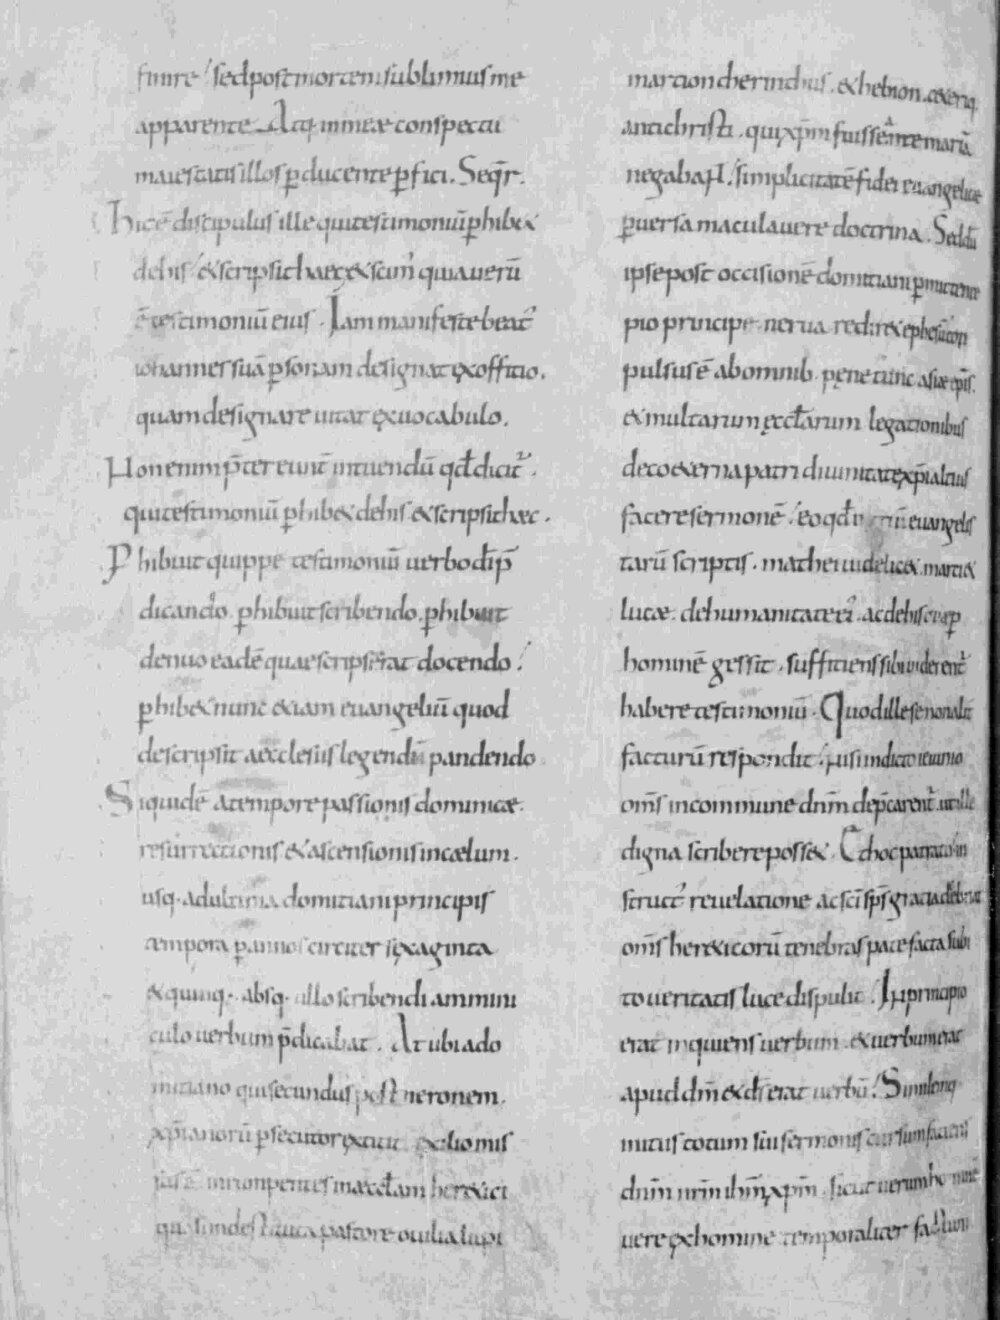 finire / sed post mortem sublimius me
apparente. Atq; in meae conspectu
maiestatis illos p̱ducente p̱fici. Seqr̄.
Hic ē discipulus ille qui testimoniū p̱hibet
de his / et scripsit haec et scim' quia uerū
ē testimoniū eius. Iam manifeste beat'
iohannes suā p̱sonam designat ex offitio.
quam designare uitat ex uocabulo.
Non enim p̄tereunt' intuendū qd̄ dicit'.
qui testimoniū p̱hibet de his et scripsit haec.
Phibuit quippe testimoniū uerbo dī p̄
dicando. p̱hibuit scribendo. p̱hibuit
denuo eadē quae scripserat docendo /
p̱hibet nunc etiam euangeliū quod
descripsit aecclesiis legendū pandendo
Siquidē a tempore passionis dominicae.
resurrectionis et ascensionis in caelum.
usq; ad ultima domitiani principis
tempora p̱ annos circiter sexaginta
et quinq;. absq; ullo scribendi ammini
culo uerbum p̄dicabat. At ubi a do
mitiano qui secundus post neronem.
xp̄ianorū p̱secutor extitit exilio mis
sus ē. inrumpentes in aeccl̄am heretici
quasi in destituta pastore ouilia lupi
marcion cherinthus. et hebion. ceteriq;
antichristi. qui xp̄m fuisse ante mariā
negabant. / simplicitatē fidei euangelicae
p̱uersa maculauere doctrina. Sed dū
ipse post occisionē domitiani p̱mittente
pio principe nerua rediret ephesū cop̱
pulsus ē ab omnib. pene tunc asiae ep̄is.
et multarum eccl̄arum legationibus
de coaeterna patri diuinitate xp̄i altius
facere sermonē / eo qd̄ in triū euangelis
tarū scriptis. mathei uidelicet. marci et
lucae. de humanitate ei'. ac de his quae p̱
hominē gessit. suffitiens sibi uiderent'
habere testimoniū. Quod ille se non aliter
facturū respondit / nisi indicto ieiunio
om̄s in commune dn̄m dep̄carent'. ut ille
digna scribere posset. Et hoc patrato in
struct' reuelatione ac sc̄i sp̄s gratia debriat'
om̄s hereticorū tenebras patefacta subi
to ueritatis luce dispulit. / In principio
erat inquiens uerbum. et uerbum erat
apud dm̄ et ds̄ erat uerbū / Similemq;
initus totum sui sermonis cursum faciens
dn̄m nr̄m ihm̄ xp̄m. sicut uerum hominē
uere ex homine temporaliter factum